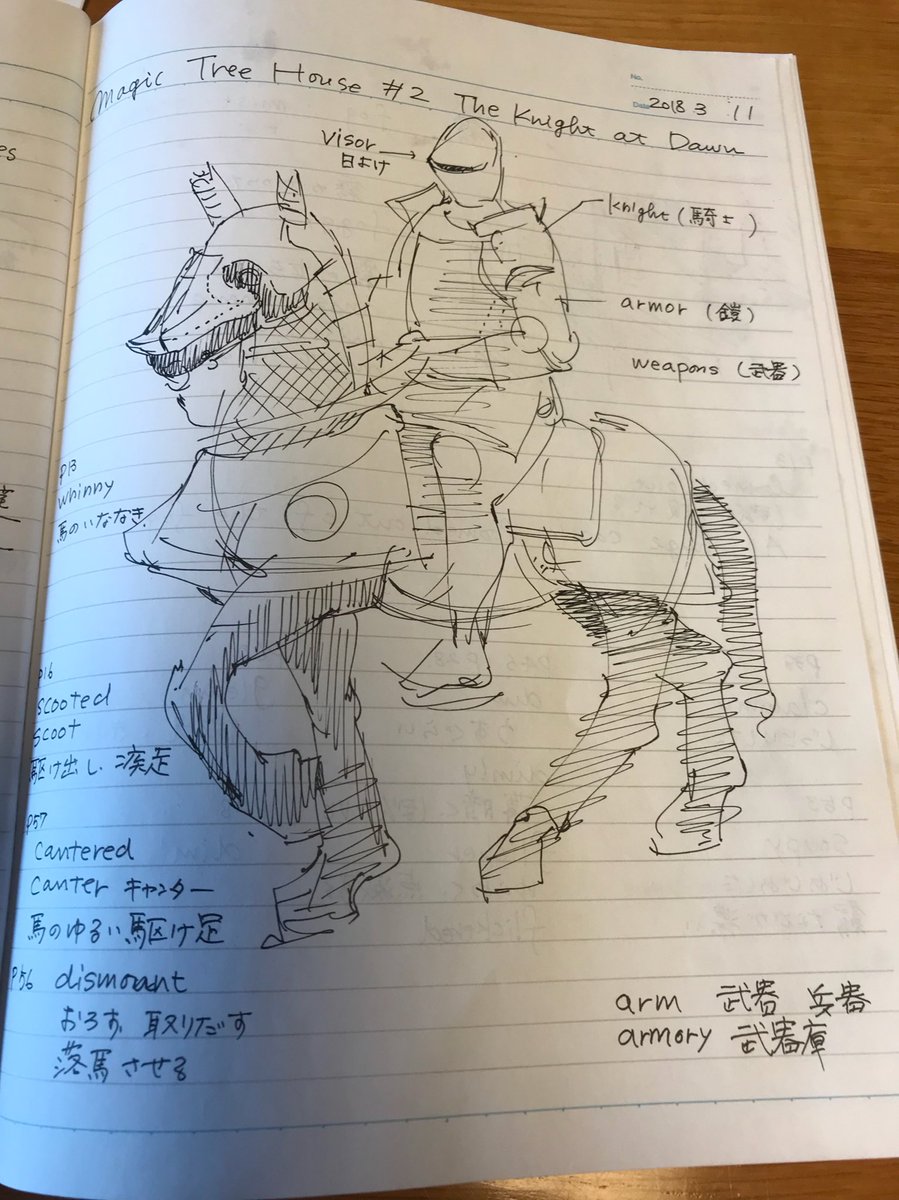 Magic Tree House #2 The Knight at Dawn
No.
Date 2018 3 11
visor
日よけ
knight (騎士)
armor (鎧)
weapons (武器)
p13
whinny
馬のいななき
p16
scooted
scoot
駆け出し 疾走
p57
cantered
canter キャンター
馬のゆるい駆け足
P56 dismount
おろす 取りだす
落馬させる
arm 武器 兵器
armory 武器庫